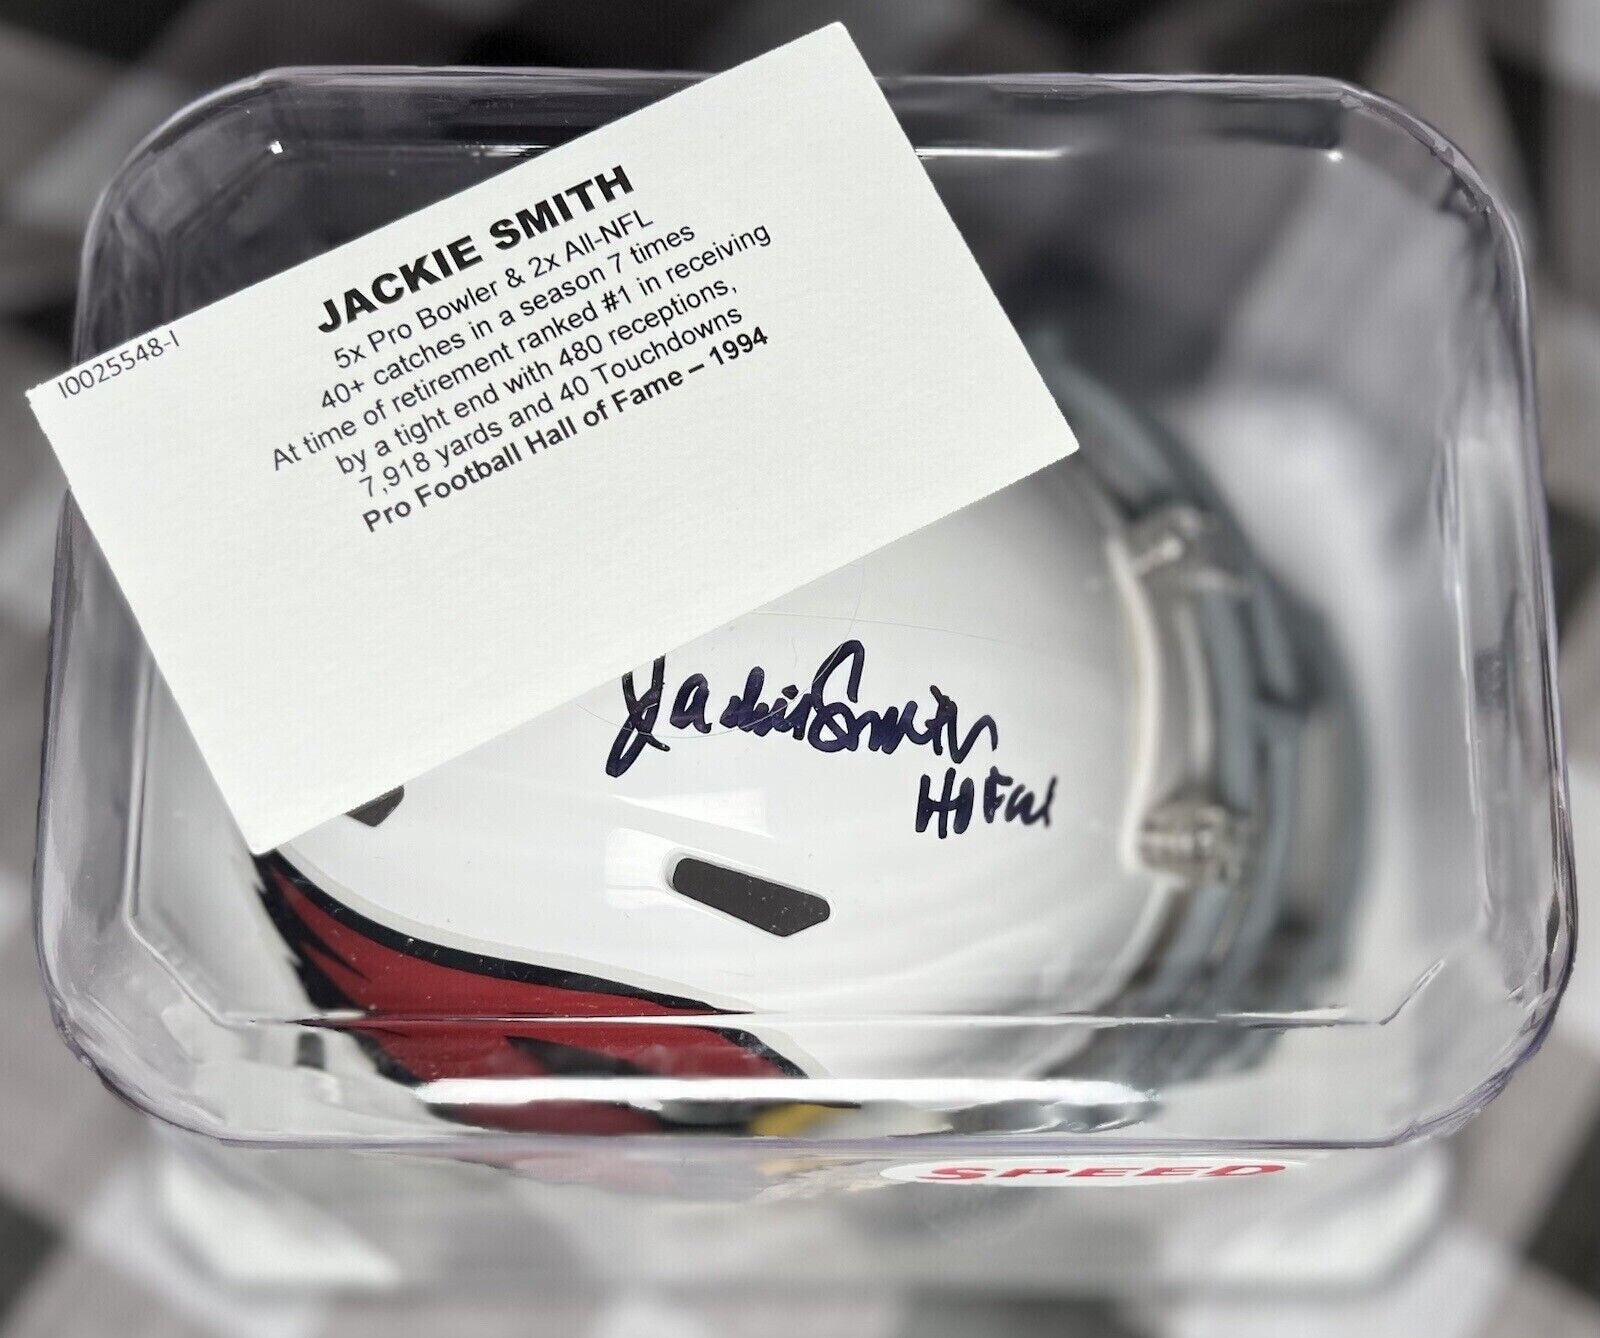 JACKIE SMITH
5x Pro Bowler & 2x All-NFL
40+ catches in a season 7 times
At time of retirement ranked #1 in receiving
by a tight end with 480 receptions,
7,918 yards and 40 Touchdowns
Pro Football Hall of Fame – 1994
I0025548-I
Jackie Smith
HOF
SPEED